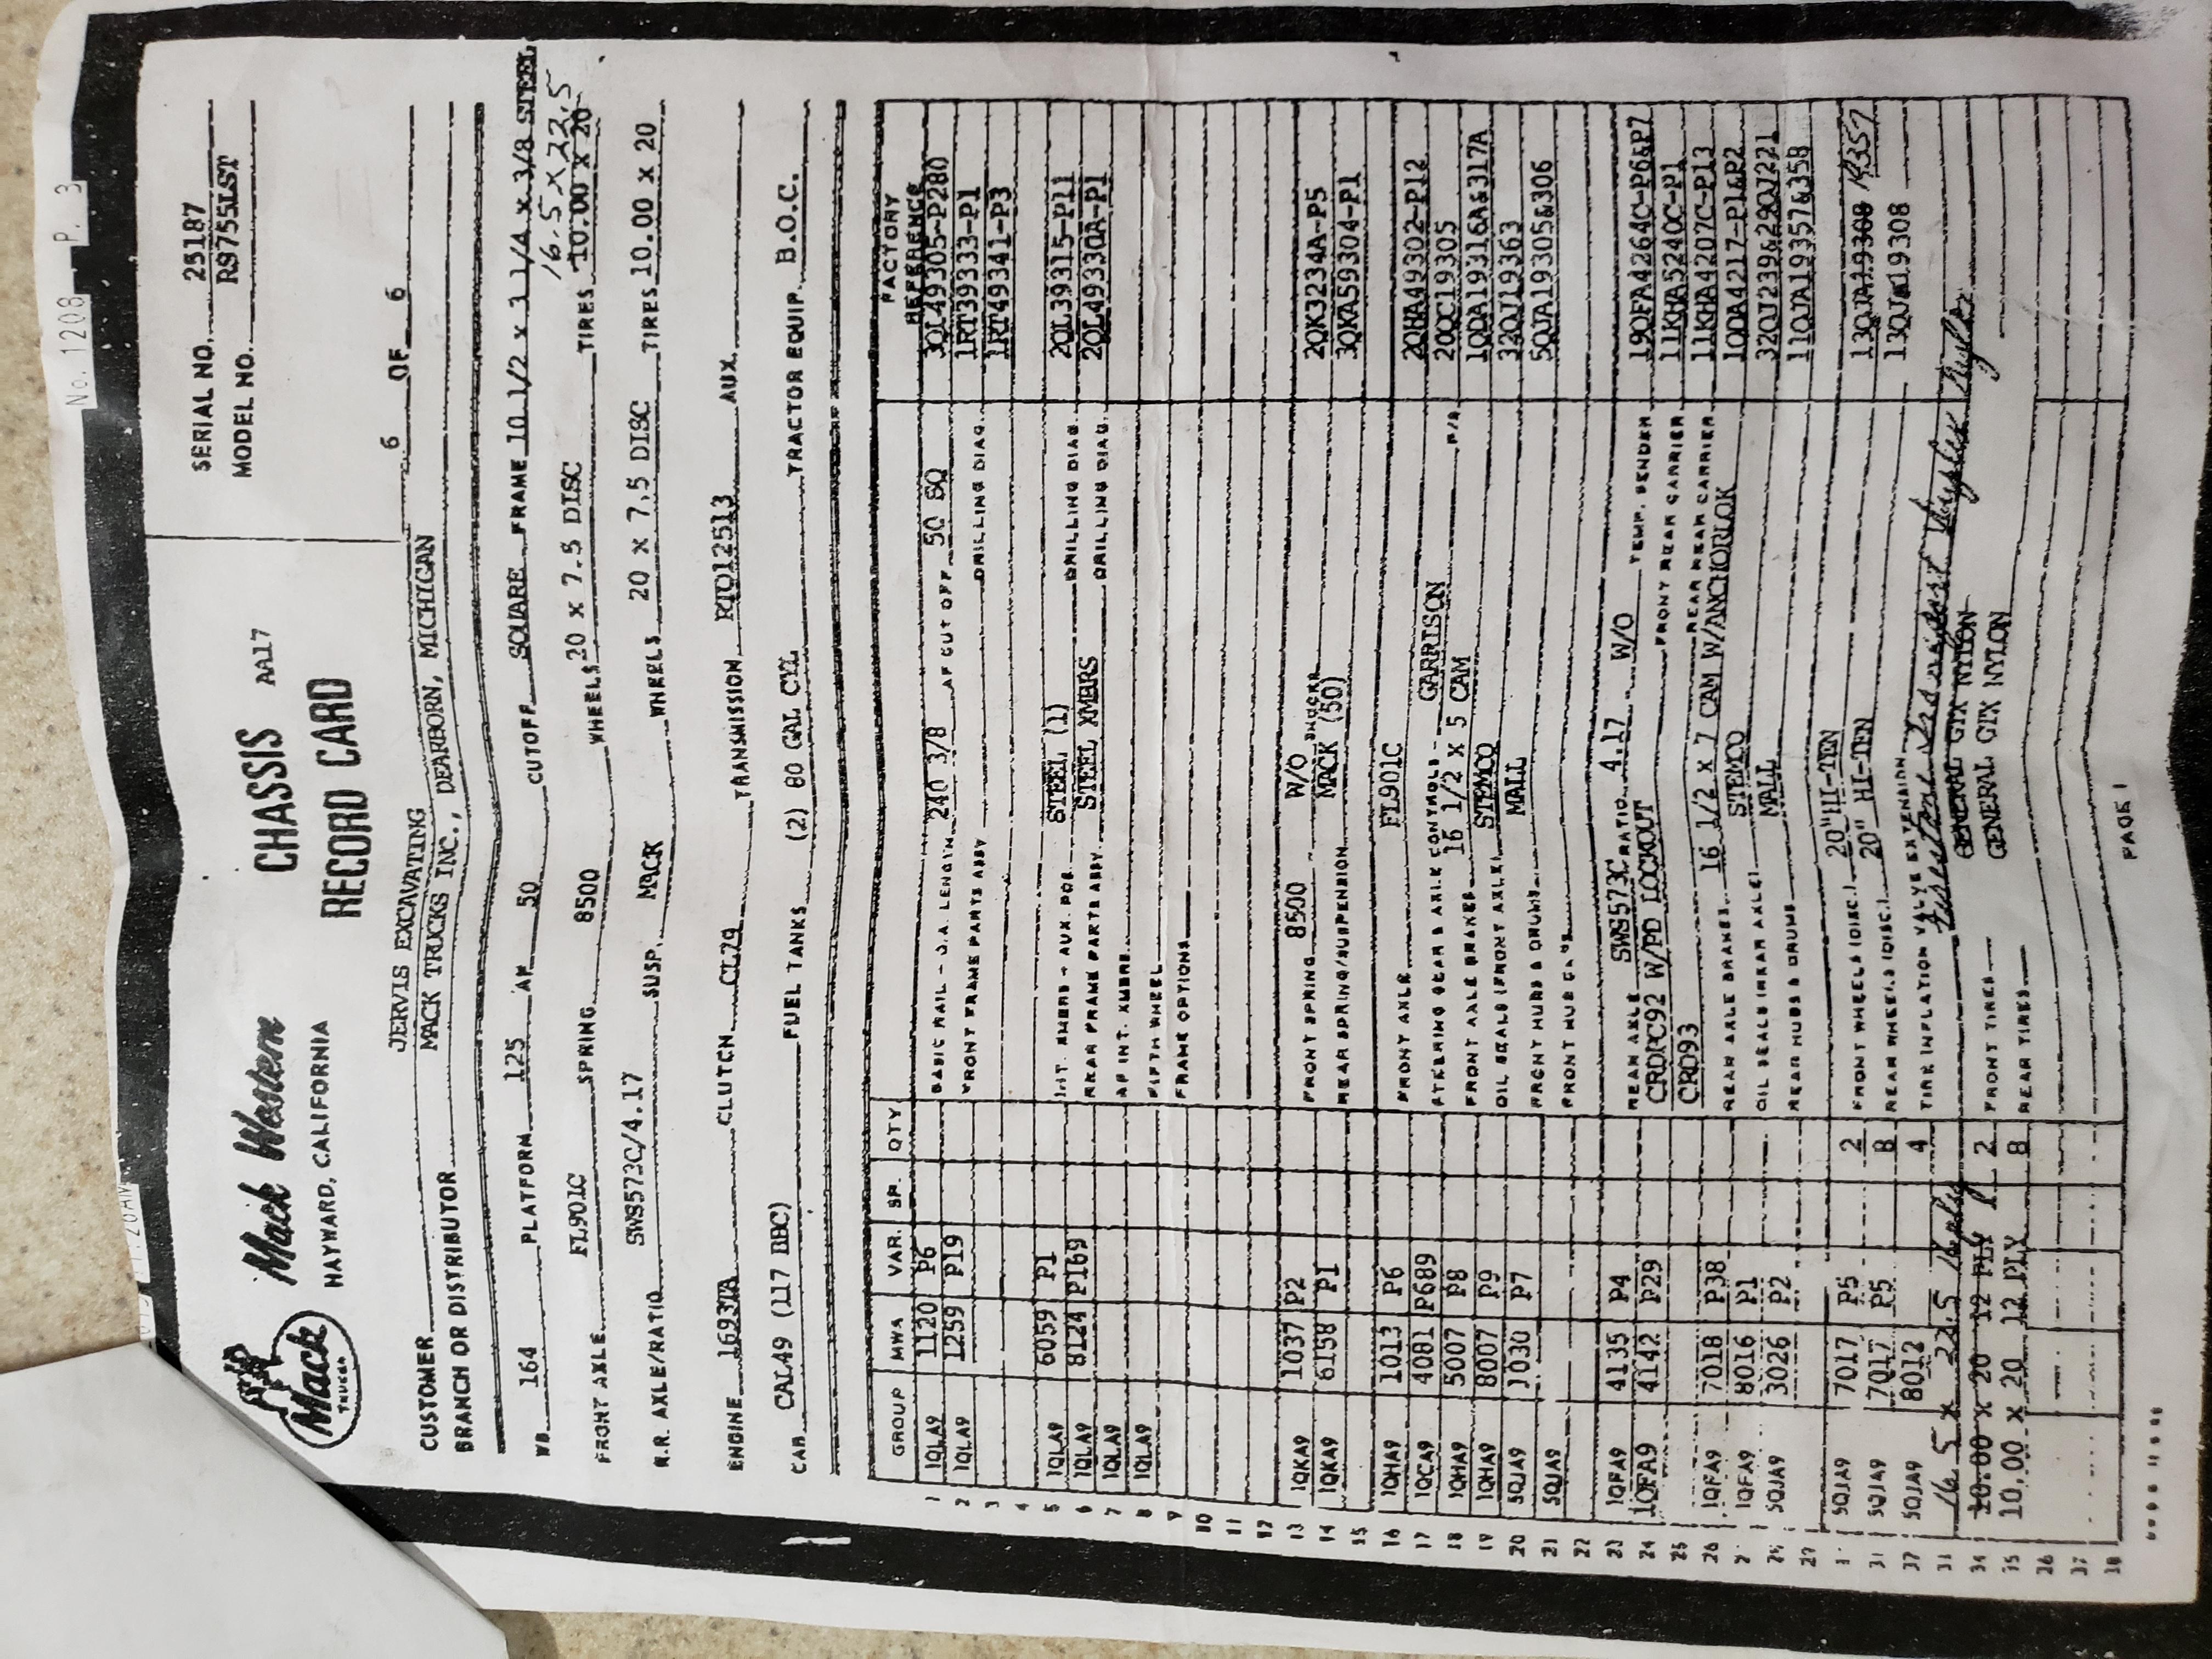 No. 1208 P. 3
Mack
TRUCKS
Mack Western
HAYWARD, CALIFORNIA
CHASSIS AA17
RECORD CARD
SERIAL NO. 25187
MODEL NO. R9755LST
CUSTOMER JERVIS EXCAVATING 6 OF 6
BRANCH OR DISTRIBUTOR MACK TRUCKS INC., DEARBORN, MICHIGAN
WB 164 PLATFORM 125 AF 50 CUTOFF SQUARE FRAME 10 1/2 x 3 1/4 x 3/8 STEEL
16.5 x 22.5
FRONT AXLE FL901C SPRING 8500 WHEELS 20 x 7.5 DISC TIRES 10.00 x 20
R.R. AXLE/RATIO SWS573C/4.17 SUSP. MACK WHEELS 20 x 7.5 DISC TIRES 10.00 x 20
ENGINE 1693TA CLUTCH CL79 TRANSMISSION RTO12513 AUX.
CAB CAL49 (117 BBC) FUEL TANKS (2) 80 GAL CYL TRACTOR EQUIP. B.O.C.
GROUP MWA VAR. SP. QTY FACTORY REFERENCE
1 1QLA9 1120 P6 BASIC RAIL - O.A. LENGTH 240 3/8 AF CUT OFF 50 SQ 3QL49305-P280
2 1QLA9 1259 P19 FRONT FRAME PARTS ASSY DRILLING DIAG. 1RT39333-P1
3 1RT49341-P3
4
5 1QLA9 6059 P1 INT. XMBRS - AUX. POS. STEEL (1) DRILLING DIAG. 2QL39315-P11
6 1QLA9 8124 P169 REAR FRAME PARTS ASSY. STEEL XMBRS DRILLING DIAG. 2QL49330A-P1
7 1QLA9 AF INT. XMBRS.
8 1QLA9 FIFTH WHEEL
9 FRAME OPTIONS
10
11
12
13 1QKA9 1037 P2 FRONT SPRING 8500 W/O SHOCKS 2QK3234A-P5
14 1QKA9 6158 P1 REAR SPRING/SUSPENSION MACK (50) 3QKA59304-P1
15
16 1QHA9 1013 P6 FRONT AXLE FL901C
17 1QCA9 4081 P689 STEERING GEAR & AXLE CONTROLS GARRISON 2QHA49302-P12
18 1QHA9 5007 P8 FRONT AXLE BRAKES 16 1/2 x 5 CAM F/A 20QC19305
19 1QHA9 8007 P9 OIL SEALS (FRONT AXLE) STEMCO 1QDA19316A&317A
20 5QJA9 1030 P7 FRONT HUBS & DRUMS MALL 32QJ19363
21 5QJA9 FRONT HUB CAPS 5QJA19305&306
22
23 1QFA9 4135 P4 REAR AXLE SWS573C RATIO 4.17 W/O TEMP. SENDER 19QFA4264C-P6&P7
24 1QFA9 4142 P29 CRDPC92 W/PD LOCKOUT FRONT REAR CARRIER 11KHA5240C-P1
25 CRD93 REAR REAR CARRIER 11KHA4207C-P13
26 1QFA9 7018 P38 REAR AXLE BRAKES 16 1/2 x 7 CAM W/ANCHORLOK 1QDA4217-P1&P2
1QFA9 8016 P1 OIL SEALS (REAR AXLE) STEMCO 32QJ7239&29QJ7221
5QJA9 3026 P2 REAR HUBS & DRUMS MALL 11QJA19357&358
29
5QJA9 7017 P5 2 FRONT WHEELS (DISC.) 20" HI-TEN 13QJA19308 19357
31 5QJA9 7017 P5 8 REAR WHEELS (DISC.) 20" HI-TEN 13QJA19308
32 5QJA9 8012 4 TIRE INFLATION VALVE EXTENSION
33 16.5 x 22.5
34 10.00 x 20 12 PLY 2 FRONT TIRES GENERAL GTX NYLON
35 10.00 x 20 12 PLY 8 REAR TIRES GENERAL GTX NYLON
36
37
38
PAGE 1